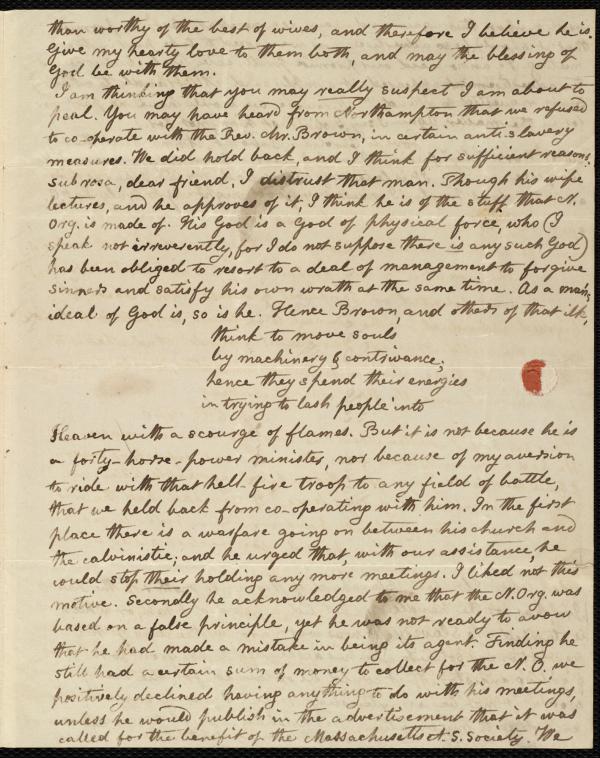 than worthy of the best of wives, and therefore I believe he is.
Give my hearty love to them both, and may the blessing of
God be with them.
I am thinking that you may really suspect I am about to
peal. You may have heard from Northampton that we refused
to co-operate with the Rev. Mr. Brown, in certain anti-slavery
measures. We did hold back, and I think for sufficient reasons.
Sub rosa, dear friend, I distrust that man. Though his wife
lectures, and he approves of it, I think he is of the stuff that N.
Org. is made of. His God is a God of physical force, who (I
speak not irreverently, for I do not suppose there is any such God)
has been obliged to resort to a deal of management to forgive
sinners and satisfy his own wrath at the same time. As a man's
ideal of God is, so is he. Hence Brown, and others of that ilk,
think to move souls
by machinery & contrivance;
hence they spend their energies
in trying to lash people into
Heaven with a scourge of flames. But it is not because he is
a forty-horse-power minister, nor because of my aversion
to ride with that hell-fire troop to any field of battle,
that we held back from co-operating with him. In the first
place there is a warfare going on between his church and
the calvinistic; and he urged that, with our assistance, he
could stop their holding any more meetings. I liked not this
motive. Secondly he acknowledged to me that the N. Org. was
based on a false principle, yet he was not ready to avow
that he had made a mistake in being its agent. Finding he
still had a certain sum of money to collect for the N. O. we
positively declined having anything to do with his meetings,
unless he would publish in the advertisement that it was
called for the benefit of the Massachusetts A. S. Society. We